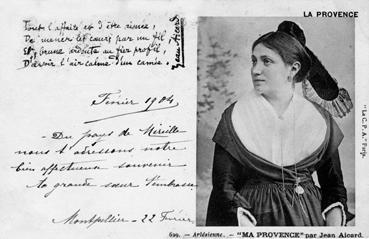 LA PROVENCE
Toute l'affaire est d'être rimée,
De mener les cœurs par un fil
Et, brune ardente au fier profil,
D'avoir l'air calme d'un camée.
Jean Aicard
Février 1904.
- Du pays de Mireille
nous t'adressons notre
bien affectueux souvenir
ta grande sœur t'embrasse
Montpellier - 22 Février
"La C. P. A." Paris.
699. - Arlésienne. - "MA PROVENCE" par Jean Aicard.